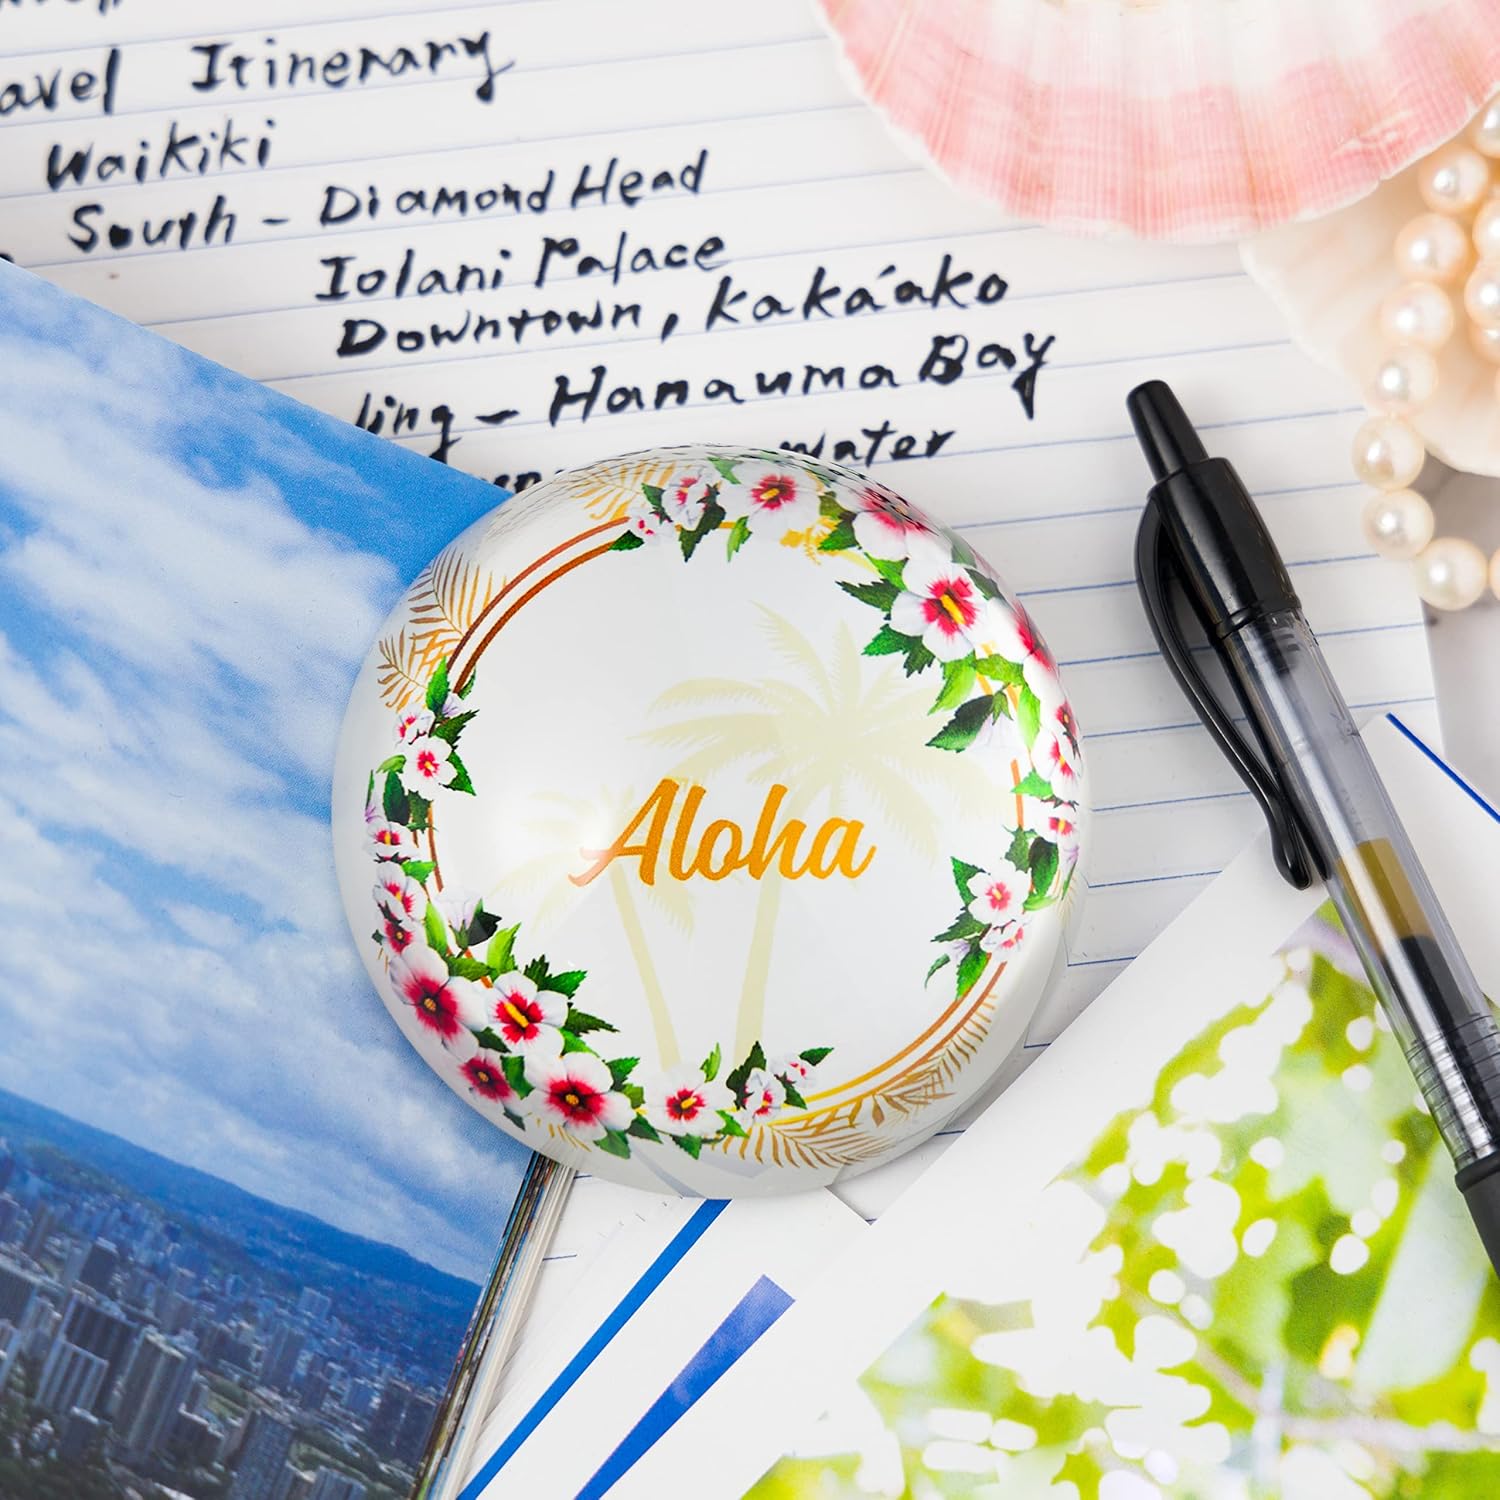 Itinerary
Waikiki
South - Diamond Head
Iolani Palace
Downtown, Kaká'ako
- Hanauma Bay
water
Aloha